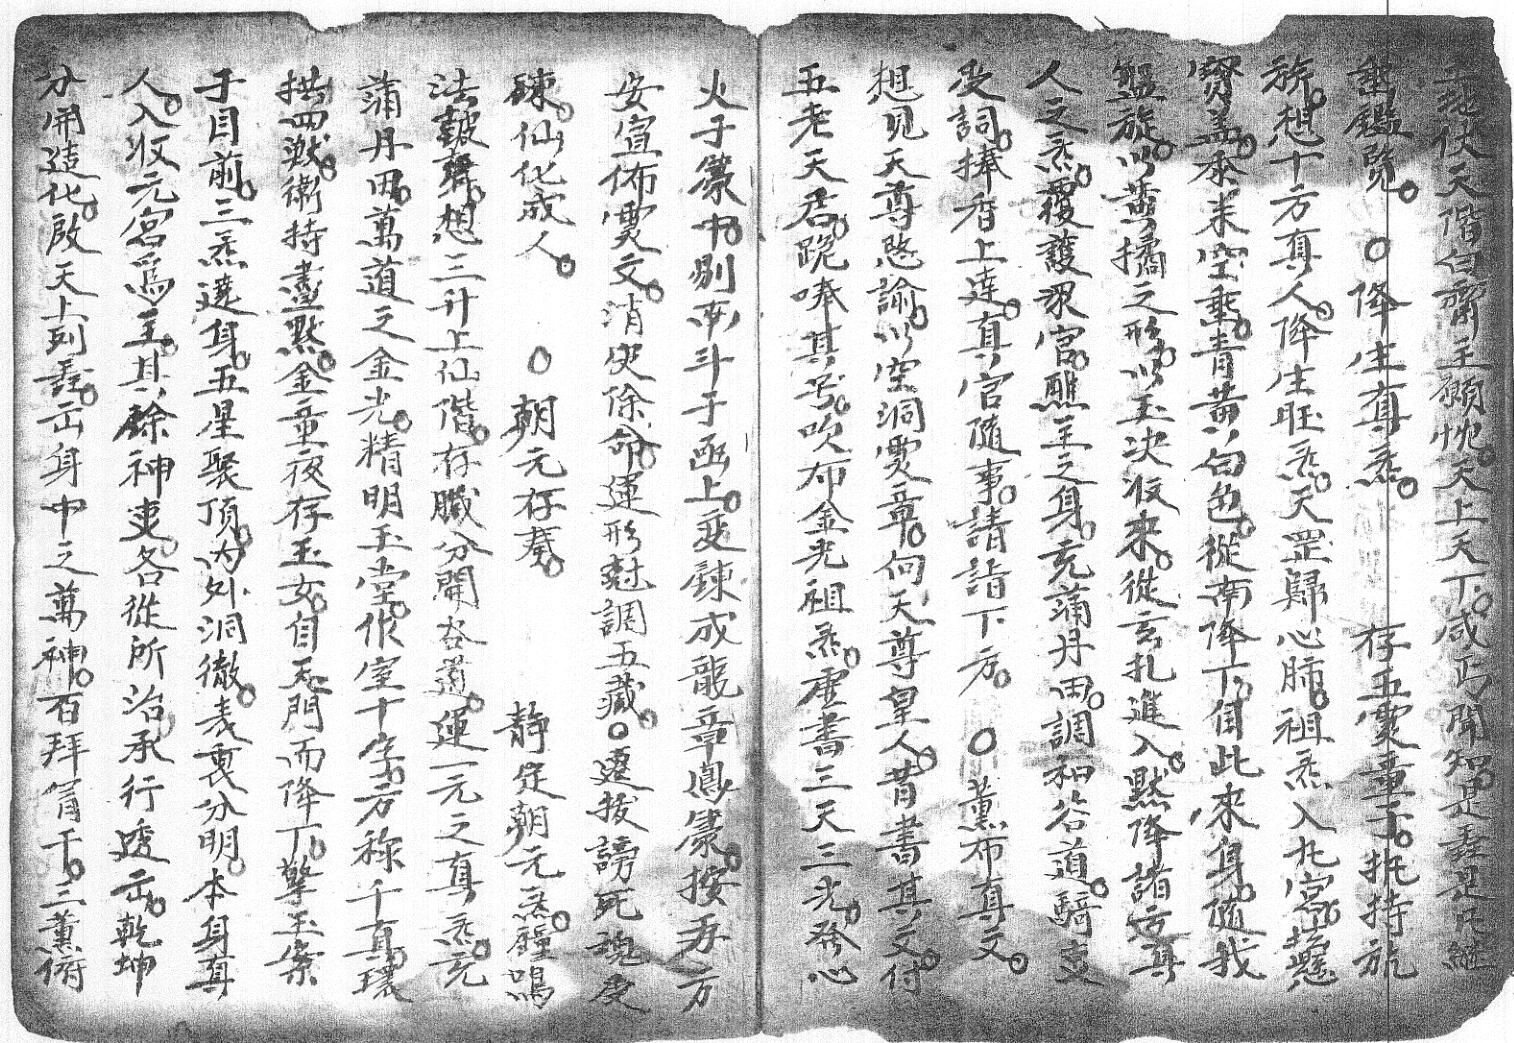 伏天階白齋主願忱。天上天下。咸丐聞知。是
垂鑑覽。○降生真炁。 存五霛童子。執持旂
旂。想十方真人降生旺炁。天罡歸心肺。祖炁入九宮。懸
寶盖。承來空熏。青黃白色。從南降下。自此來身。隨我
盤旋。以黃橘之形。以玉决收來。從玄扎進入。默降諸方真
人之炁。覆護眾官。醮主之身。充蒲丹田。調和谷道。騎吏
受詞。捧香上達。真官隨事。請詣下方。 ○薰布真文。
想見天尊愍諭。以空洞霛章。向天尊皇人。昔書其文。付
五老天君。跪奉其号。吹布金光祖炁。虛書三天三光。發心
火子篆书。剔南斗于函上。变鍊成龍章鳳篆。按五方
安宣佈霛文。消灾除命。運形魁調五藏。○遷拔謗死魂受
鍊。仙化成人。 ○朝元存奏。 靜定朝元炁。鐘鳴
法鼓響。想三升上仙階。存職分開谷道。運一元之真炁。充
蒲丹田。萬道之金光。精明玉堂。作室十字。方稱千真。環
拱四溦。衛持臺㸃。金童夜存玉女。自天門而降下。擎玉案
于目前。三炁遶身。五星聚頂。内外洞徹。表裏分明。本身真
人入收元宮爲主。其餘神吏。各從所治承行。透出乾坤
分開造化。啟天上列聖。出身中之萬神。百拜冐干。三薰俯